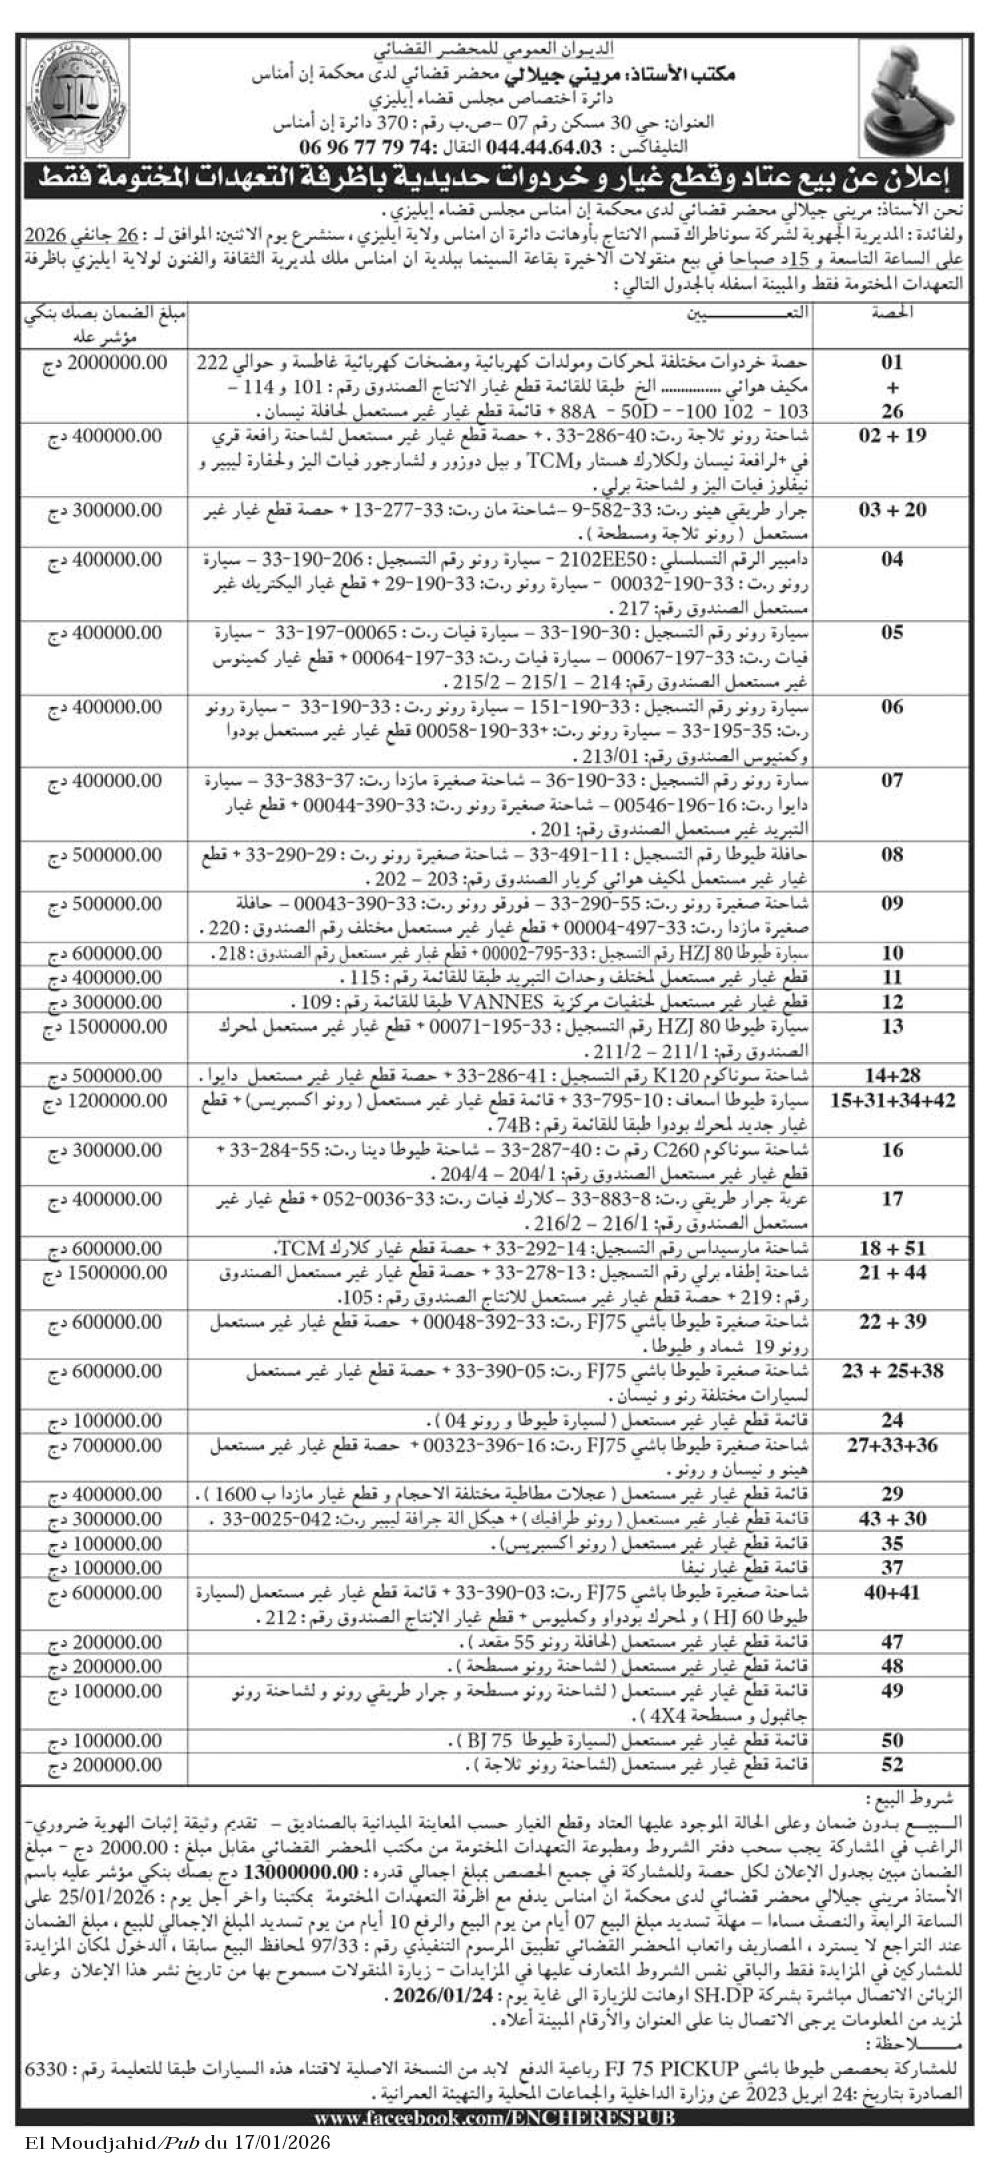 الديوان العمومي للمحضر القضائي
مكتب الأستاذ: مريني جيلالي محضر قضائي لدى محكمة إن أمناس
دائرة اختصاص مجلس قضاء إيليزي
العنوان: حي 30 مسكن رقم 07 –ص.ب رقم: 370 دائرة إن أمناس
التليفاكس : 044.44.64.03 النقال :74 79 77 96 06
إعلان عن بيع عتاد وقطع غيار و خردوات حديدية باظرفة التعهدات المختومة فقط
نحن الأستاذ: مريني جيلالي محضر قضائي لدى محكمة إن أمناس مجلس قضاء إيليزي .
ولفائدة : المديرية الجهوية لشركة سوناطراك قسم الانتاج بأوهانت دائرة ان امناس ولاية ايليزي ، سنشرع يوم الاثنين: الموافق لـ : 26 جانفي 2026
على الساعة التاسعة و 15د صباحا في بيع منقولات الاخيرة بقاعة السينما ببلدية ان امناس ملك لمديرية الثقافة والفنون لولاية ايليزي باظرفة
التعهدات المختومة فقط والمبينة اسفله بالجدول التالي :
الحصة التعـــــــــيين مبلغ الضمان بصك بنكي
مؤشر عله
01 حصة خردوات مختلفة لمحركات ومولدات كهربائية ومضخات كهربائية غاطسة و حوالي 222 2000000.00 دج
+ مكيف هوائي ............... الخ طبقا للقائمة قطع غيار الانتاج الصندوق رقم : 101 و 114 –
26 103 - 102 100-- 88A - 50D + قائمة قطع غيار غير مستعمل لحافلة نيسان .
02 + 19 شاحنة رونو ثلاجة ر.ت: 40-286-33 . + حصة قطع غيار غير مستعمل لشاحنة رافعة قري 400000.00 دج
في +لرافعة نيسان ولكلارك هستار وTCM و بيل دوزور و لشارجور فيات اليز ولحفارة ليبير و
نيفلوز فيات اليز و لشاحنة برلي .
03 + 20 جرار طريقي هينو ر.ت: 33-582-9 –شاحنة مان ر.ت: 33-277-13 + حصة قطع غيار غير 300000.00 دج
مستعمل ( رونو ثلاجة ومسطحة ).
04 دامبير الرقم التسلسلي : 2102EE50 - سيارة رونو رقم التسجيل : 206-190-33 – سيارة 400000.00 دج
رونو ر.ت : 33-190-00032 - سيارة رونو ر.ت: 33-190-29 + قطع غيار اليكتريك غير
مستعمل الصندوق رقم: 217 .
05 سيارة رونو رقم التسجيل : 30-190-33 – سيارة فيات ر.ت : 00065-197-33 - سيارة 400000.00 دج
فيات ر.ت: 33-197-00067 – سيارة فيات ر.ت: 33-197-00064 + قطع غيار كمينوس
غير مستعمل الصندوق رقم: 214 – 215/1 – 215/2 .
06 سيارة رونو رقم التسجيل : 33-190-151 – سيارة رونو ر.ت : 33-190-33 - سيارة رونو 400000.00 دج
ر.ت: 35-195-33 – سيارة رونو ر.ت: +33-190-00058 قطع غيار غير مستعمل بودوا
وكمنيوس الصندوق رقم: 213/01 .
07 سارة رونو رقم التسجيل : 33-190-36 – شاحنة صغيرة مازدا ر.ت: 37-383-33 – سيارة 400000.00 دج
دايوا ر.ت: 16-196-00546 – شاحنة صغيرة رونو ر.ت: 33-390-00044 + قطع غيار
التبريد غير مستعمل الصندوق رقم: 201 .
08 حافلة طيوطا رقم التسجيل : 11-491-33 – شاحنة صغيرة رونو ر.ت : 29-290-33 + قطع 500000.00 دج
غيار غير مستعمل لمكيف هوائي كريار الصندوق رقم: 203 – 202 .
09 شاحنة صغيرة رونو ر.ت: 55-290-33 – فورقو رونو ر.ت: 33-390-00043 – حافلة 500000.00 دج
صغيرة مازدا ر.ت: 33-497-00004 + قطع غيار غير مستعمل مختلف رقم الصندوق : 220 .
10 سيارة طيوطا HZJ 80 رقم التسجيل : 33-795-00002 + قطع غيار غير مستعمل رقم الصندوق : 218 . 600000.00 دج
11 قطع غيار غير مستعمل لمختلف وحدات التبريد طبقا للقائمة رقم : 115 . 400000.00 دج
12 قطع غيار غير مستعمل لحنفيات مركزية VANNES طبقا للقائمة رقم : 109 . 300000.00 دج
13 سيارة طيوطا HZJ 80 رقم التسجيل : 33-195-00071 + قطع غيار غير مستعمل لمحرك 1500000.00 دج
الصندوق رقم: 211/1 – 211/2 .
14+28 شاحنة سوناكوم K120 رقم التسجيل : 41-286-33 + حصة قطع غيار غير مستعمل دايوا . 500000.00 دج
15+31+34+42 سيارة طيوطا اسعاف : 10-795-33 + قائمة قطع غيار غير مستعمل ( رونو اكسبريس) + قطع 1200000.00 دج
غيار جديد لمحرك بودوا طبقا للقائمة رقم : 74B .
16 شاحنة سوناكوم C260 رقم ت : 40-287-33 – شاحنة طيوطا دينا ر.ت: 55-284-33 + 300000.00 دج
قطع غيار غير مستعمل الصندوق رقم: 204/1 – 204/4 .
17 عربة جرار طريقي ر.ت: 8-883-33 –كلارك فيات ر.ت: 33-0036-052 + قطع غيار غير 400000.00 دج
مستعمل الصندوق رقم: 216/1 – 216/2 .
18 + 51 شاحنة مارسيداس رقم التسجيل: 14-292-33 + حصة قطع غيار كلارك TCM. 600000.00 دج
21 + 44 شاحنة إطفاء برلي رقم التسجيل : 13-278-33 + حصة قطع غيار غير مستعمل الصندوق 1500000.00 دج
رقم : 219 + حصة قطع غيار غير مستعمل للانتاج الصندوق رقم : 105.
22 + 39 شاحنة صغيرة طيوطا باشي FJ75 ر.ت: 33-392-00048 + حصة قطع غيار غير مستعمل 600000.00 دج
رونو 19 شماد و طيوطا .
23 + 25+38 شاحنة صغيرة طيوطا باشي FJ75 ر.ت: 05-390-33 + حصة قطع غيار غير مستعمل 600000.00 دج
لسيارات مختلفة رنو و نيسان .
24 قائمة قطع غيار غير مستعمل ( لسيارة طيوطا و رونو 04 ). 100000.00 دج
27+33+36 شاحنة صغيرة طيوطا باشي FJ75 ر.ت: 16-396-00323 + حصة قطع غيار غير مستعمل 700000.00 دج
هينو و نيسان و رونو .
29 قائمة قطع غيار غير مستعمل ( عجلات مطاطية مختلفة الاحجام و قطع غيار مازدا ب 1600 ). 400000.00 دج
43 + 30 قائمة قطع غيار غير مستعمل ( رونو طرافيك ) + هيكل الة جرافة ليبير ر.ت: 042-0025-33 . 300000.00 دج
35 قائمة قطع غيار غير مستعمل ( رونو اكسبريس). 100000.00 دج
37 قائمة قطع غيار نيفا 100000.00 دج
40+41 شاحنة صغيرة طيوطا باشي FJ75 ر.ت: 03-390-33 + قائمة قطع غيار غير مستعمل (لسيارة 600000.00 دج
طيوطا HJ 60 ) و لمحرك بودواو وكمليوس + قطع غيار الإنتاج الصندوق رقم : 212 .
47 قائمة قطع غيار غير مستعمل (لحافلة رونو 55 مقعد ). 200000.00 دج
48 قائمة قطع غيار غير مستعمل ( لشاحنة رونو مسطحة ). 200000.00 دج
49 قائمة قطع غيار غير مستعمل ( لشاحنة رونو مسطحة و جرار طريقي رونو و لشاحنة رونو 100000.00 دج
جانمبول و مسطحة 4X4 ) .
50 قائمة قطع غيار غير مستعمل (لسيارة طيوطا BJ 75 ). 100000.00 دج
52 قائمة قطع غيار غير مستعمل (لشاحنة رونو ثلاجة ). 200000.00 دج
شروط البيع :
الـبـيـــع بـدون ضمان وعلى الحالة الموجود عليها العتاد وقطع الغيار حسب المعاينة الميدانية بالصناديق – تقديم وثيقة إثبات الهوية ضروري-
الراغب في المشاركة يجب سحب دفتر الشروط ومطبوعة التعهدات المختومة من مكتب المحضر القضائي مقابل مبلغ : 2000.00 دج – مبلغ
الضمان مبين بجدول الإعلان لكل حصة وللمشاركة في جميع الحصص بمبلغ اجمالي قدره : 13000000.00 دج بصك بنكي مؤشر عليه باسم
الأستاذ مريني جيلالي محضر قضائي لدى محكمة ان امناس يدفع مع اظرفة التعهدات المختومة بمكتبنا واخر أجل يوم : 25/01/2026 على
الساعة الرابعة والنصف مساءا – مهلة تسديد مبلغ البيع 07 أيام من يوم البيع والرفع 10 أيام من يوم تسديد المبلغ الإجمالي للبيع ، مبلغ الضمان
عند التراجع لا يسترد ، المصاريف واتعاب المحضر القضائي تطبيق المرسوم التنفيذي رقم : 97/33 لمحافظ البيع سابقا ، الدخول لمكان المزايدة
للمشاركين في المزايدة فقط والباقي نفس الشروط المتعارف عليها في المزايدات – زيارة المنقولات مسموح بها من تاريخ نشر هذا الإعلان وعلى
الزبائن الاتصال مباشرة بشركة SH.DP اوهانت للزيارة الى غاية يوم : 2026/01/24 .
لمزيد من المعلومات يرجى الاتصال بنا على العنوان والأرقام المبينة أعلاه .
مـــــلاحظة :
للمشاركة بحصص طيوطا باشي FJ 75 PICKUP رباعية الدفع لابد من النسخة الاصلية لاقتناء هذه السيارات طبقا للتعليمة رقم : 6330
الصادرة بتاريخ :24 ابريل 2023 عن وزارة الداخلية والجماعات المحلية والتهيئة العمرانية .
www.faceebook.com/ENCHERESPUB
El Moudjahid/Pub du 17/01/2026